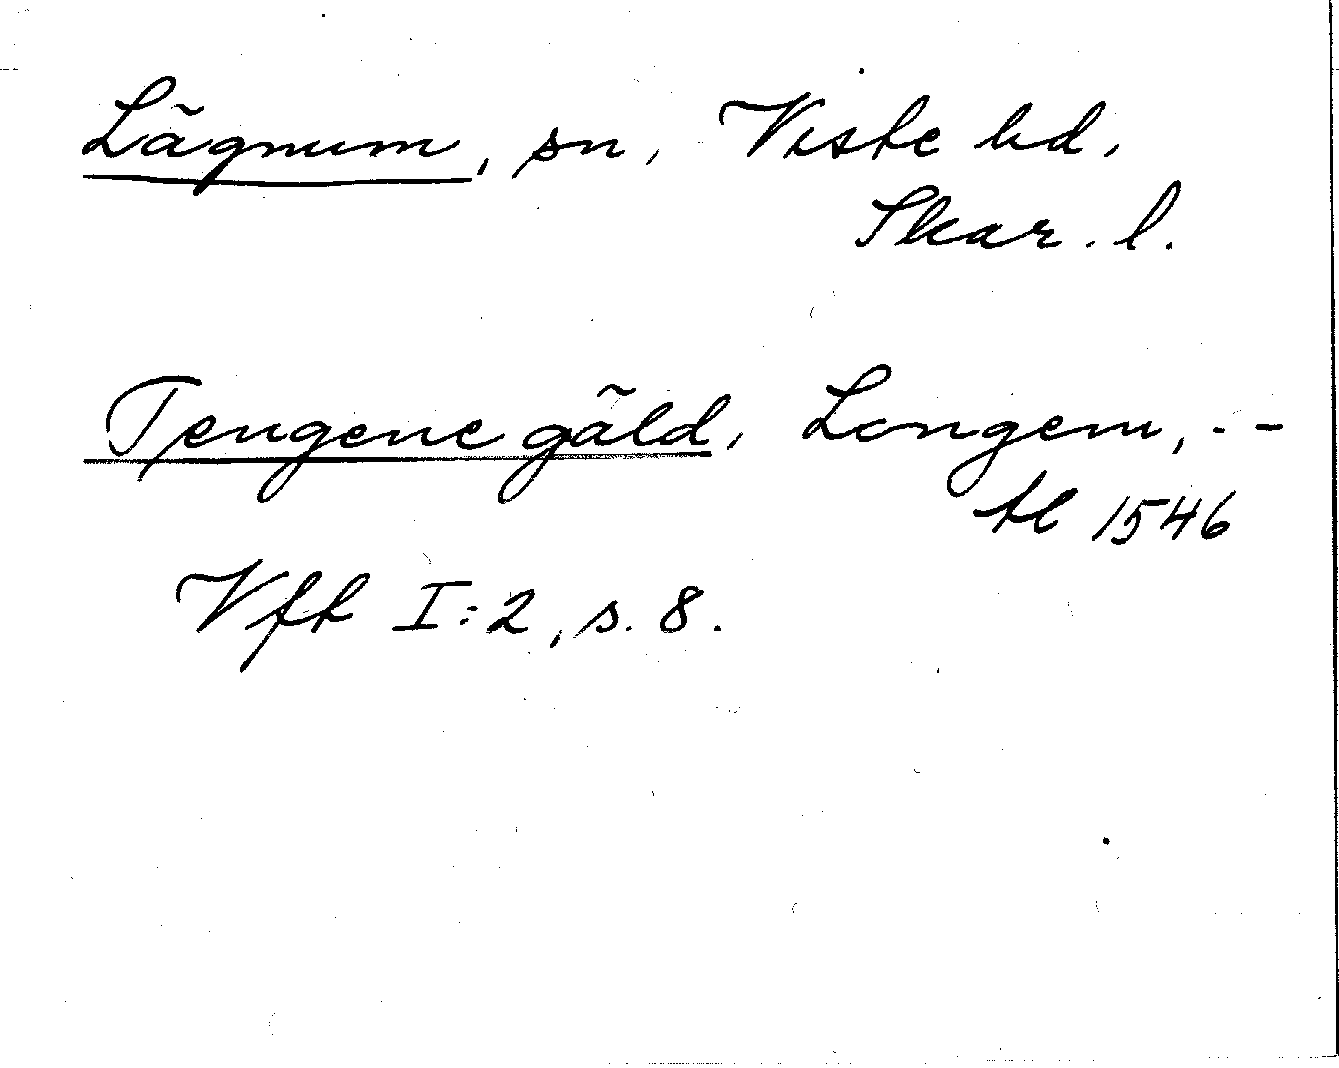 Lägnum, sn, Viste hd,
Skar. l.
Tengene gäld, Longem, --
tl 1546
Vft I:2, s. 8.